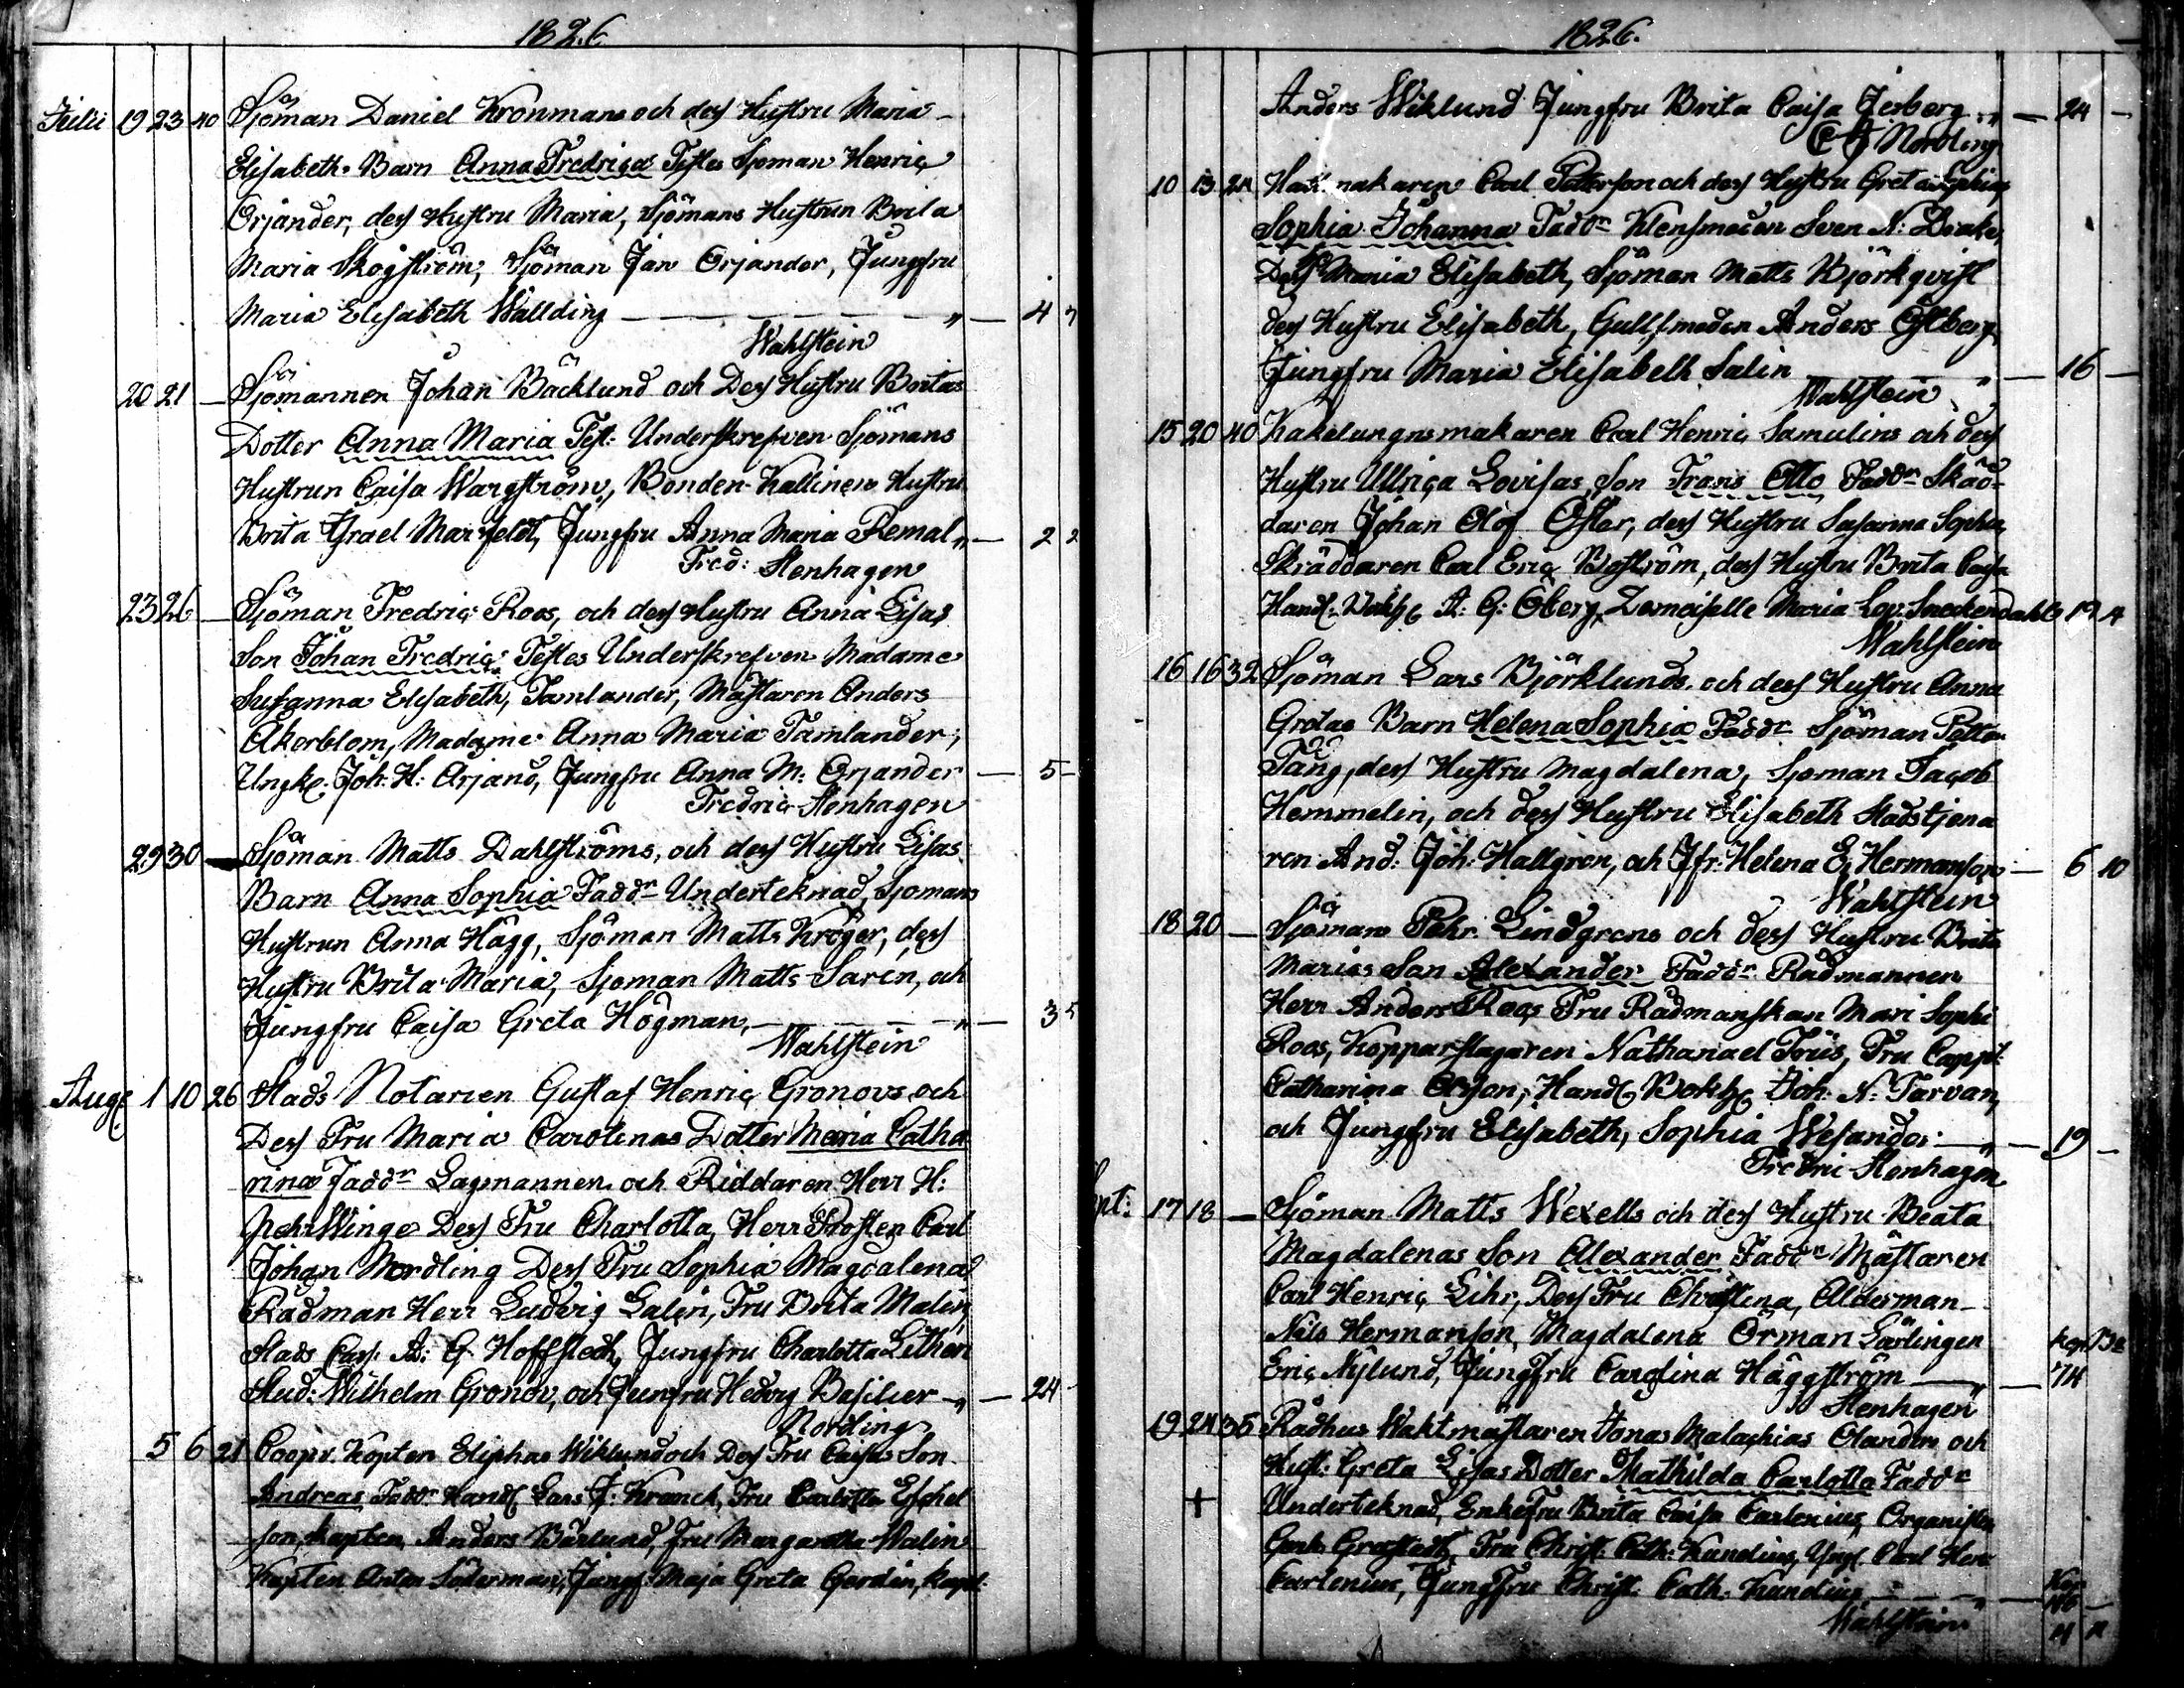 1826
Julii 19 23 40 Sjöman Daniel Kronmans och dess Hustru Maria
Elisabeths Barn Anna Fredrica Testes Sjöman Henric
Orjander, dess Hustru Maria, Sjömans Hustrun Brita
Maria Skogström, Sjöman Jan Orjander, Jungfru
Maria Elisabeth Wallding — „ — 4
Wahlstein
20 21 — Sjömannen Johan Bäcklund och Dess Hustru Britas
Dotter Anna Maria Test: Underskrefven Sjömans
Hustrun Caisa Wargström, Bonden Kallinens Hustru
Brita Marfeldt, Jungfru Anna Maria Remal „ — 2 2
Fred: Stenhagen
23 26 — Sjöman Fredric Roos, och dess Hustru Anna Lisas
Son Johan Fredric Testes Underskrefven Madame
Susanna Elisabeth, Tamlander, Mästaren Anders
Åkerblom, Madame Anna Maria Tamlander,
Ungk. Joh. H: Orjand, Jungfru Anna M: Orjander — 5 -
Fredric Stenhagen
29 30 — Sjöman Matts Dahlströms, och dess Hustru Lisas
Barn Anna Sophia Faddr Underteknad, Sjömans
Hustrun Anna Hägg, Sjöman Matts Kröger, dess
Hustru Brita Maria, Sjöman Matts Saren, och
Jungfru Caisa Greta Högman, — „ — 3 5
Wahlstein
Aug. 1 10 26 Stads Notarien Gustaf Henric Gronovs och
Dess Fru Maria Carolinas Dotter Maria Catha
rina Faddr Lagmannen och Riddaren Herr H:
Winge Dess Fru Charlotta, Herr Prosten Carl
Johan Nordling Dess Fru Sophia Magdalena
Rådman Herr Ludvig Galin, Fru Brita Malin,
Stads Cass. A: G. Hoffstedt, Jungfru Charlotta Lithén
Stud: Wilhelm Gronov, och Jungfru Hedvig Basilier „ — 24 -
Nordling
5 6 21 Coopv. Kapten Eliphas Wiklund och Dess Fru Caisas Son
Andreas Faddr Handl Lars J: Kranck, Fru Carlotta Eschel
son, Kapten Anders Bärlund, Fru Margaretha Walin
Kapten Anton Söderman, Jungf. Maja Greta Gordin, Kapt.
1826.
Anders Wiklund Jungfru Brita Caisa Jerberg „ — 24 —
C J Nordling
10 13 24 Hattmakaren Carl Petterson och dess Hustru Greta Sophias
Sophia Johanna Faddr Klensmeden Sven N: Drake,
Dess Maria Elisabeth, Sjöman Matts Björkqvist
dess Hustru Elisabeth, Gullsmeden Anders Östberg,
Jungfru Maria Elisabeth Salin — „ — 16 —
Wahlstein
15 20 40 Kakelungnsmakaren Carl Henric Samulins och dess
Hustru Ullrica Lovisas, Son Frans Otto Faddr Skräd-
daren Johan Olof Öster, dess Hustru Susanna Sophia
Skräddaren Carl Eric Boström, dess Hustru Brita Caisa
Handl. Bokh. A: G: Öberg, Demoiselle Maria Lov: Sneckendahl 19 4
Wahlstein
16 16 32 Sjöman Lars Björklunds och dess Hustru Anna
Gretas Barn Helena Sophia Faddr Sjöman Petter
Tång, dess Hustru Magdalena, Sjöman Jacob
Hemmelin, och dess Hustru Elisabeth Stadstjena
ren And: Joh: Hallgren, och Jfr: Helena E. Hermanson — 6 10
Wahlstein
18 20 — Sjöman Pehr Lindgrens och dess Hustru Brita
Marias Son Alexander Faddr Rådmannen
Herr Anders Roos Fru Rådmanskan Mari Sophi
Roos, Kopparslagaren Nathanael Friis, Fru Capit
Catharina Olson, Handl Bokh. Joh: N: Tarvan,
och Jungfru Elisabeth, Sophia Wesander — „ — 19 —
Fredric Stenhagen
Sept: 17 18 — Sjöman Matts Wexells och dess Hustru Beata
Magdalenas Son Alexander Faddr Mästaren
Carl Henric Lihr, Dess Fru Christina, Ålderman
Nils Hermanson, Magdalena Örman Lärlingen
Eric Nylund, Jungfru Carolina Häggström — „ — 74
Stenhagen
19 24 35 Rådhus Waktmästaren Jonas Malachias Olanders och
Hust: Greta Lisas Dotter Mathilda Carlotta Faddr
+ Underteknad, Enkefru Brita Caisa Carlenius, Organisten
Fru Christ: Cath: Kundius, Yngl. Carl Henr
Carlenius, Jungfru Christ. Cath. Kundius, — „ —
Wahlstein